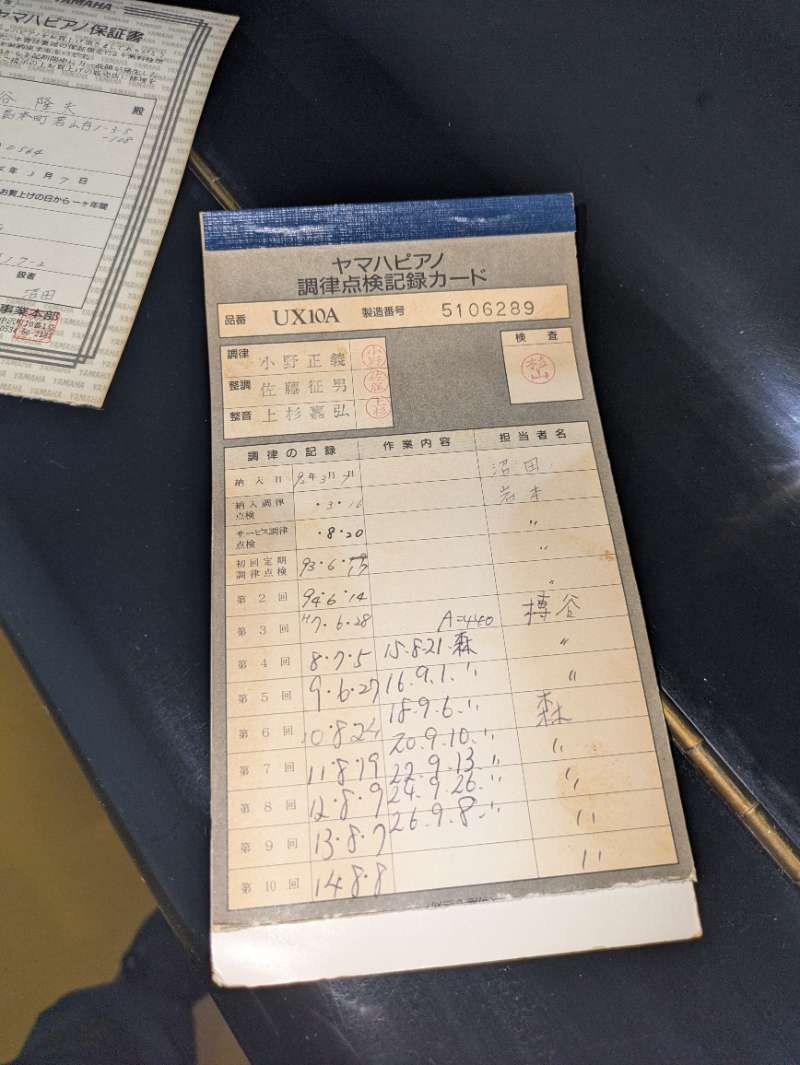 YAMAHA
ヤマハピアノ保証書
谷 隆夫 殿
0564
3月7日
お買上げの日から一ヶ年間
沼田
事業本部
ヤマハピアノ
調律点検記録カード
品番 UX10A 製造番号 5106289
調律 小野正義
整調 佐藤征男
整音 上杉嘉弘
検査
調律の記録 作業内容 担当者名
納入日 92年3月7日 沼田
納入調律点検 ・3・16 岩本
サービス調律点検 ・8・20 〃
初回定期調律点検 93・6・17 〃
第2回 94・6・14 〃
第3回 H7・6・28 A=440 樽谷
第4回 8・7・5 15.8.21.森 〃
第5回 9・6・27 16.9.1.〃 〃
第6回 10・8・24 18.9.6.〃 森
第7回 11・8・19 20.9.10.〃 〃
第8回 12・8・9 22.9.13.〃 〃
第9回 13・8・7 24.9.26.〃 〃
第10回 14・8・8 26.9.8.〃 〃